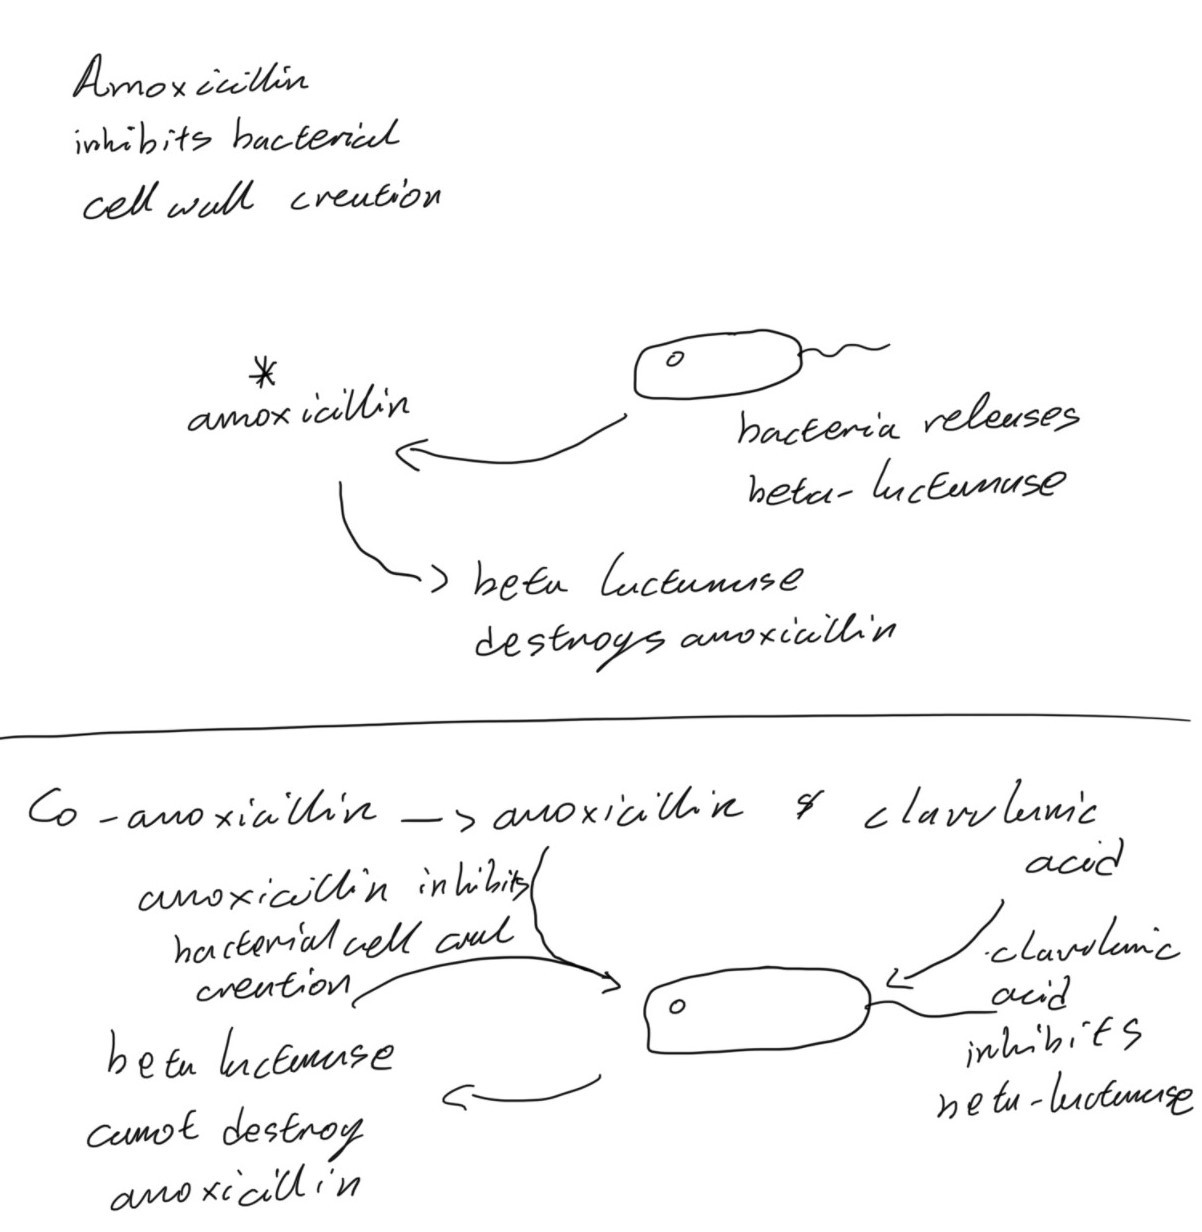 Amoxicillin
inhibits bacterial
cell wall creation
*
amoxicillin
bacteria releases
beta-lactamase
beta lactamase
destroys amoxicillin
Co-amoxicillin -> amoxicillin & clavulanic
acid
amoxicillin inhibits
bacterial cell wall
creation
clavulanic
acid
inhibits
beta-lactamase
beta lactamase
cannot destroy
amoxicillin